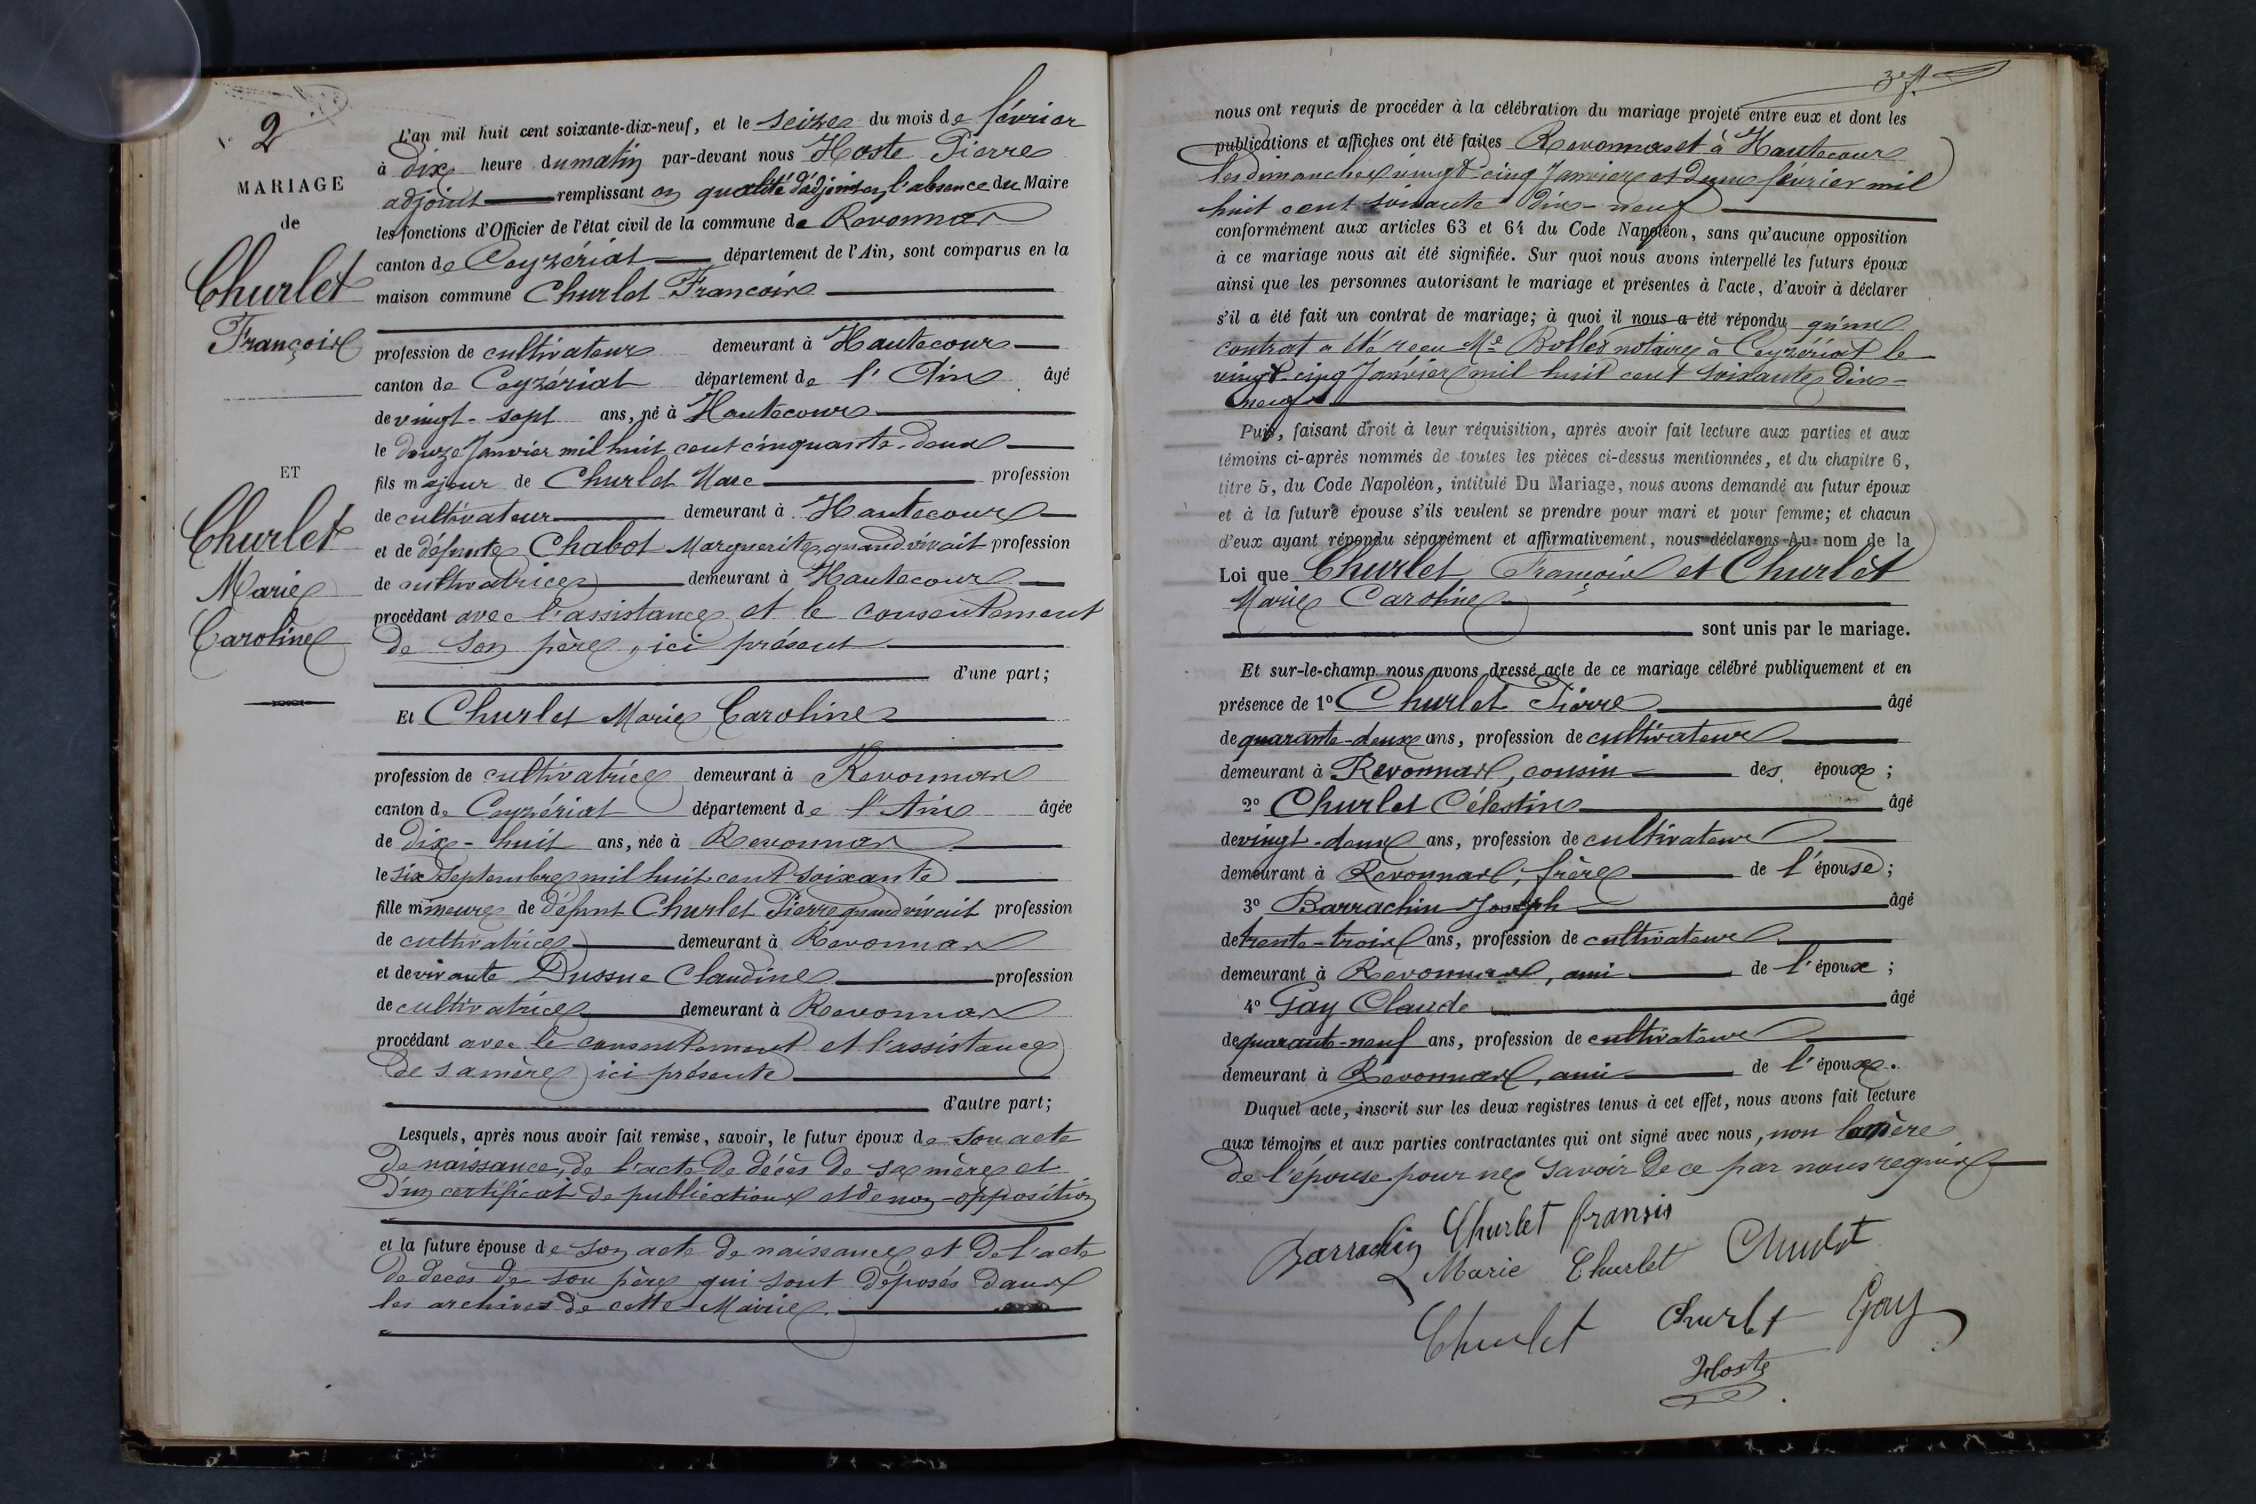 2
MARIAGE
de
Churlet
François
ET
Churlet
Marie
Caroline
L'an mil huit cent soixante-dix-neuf, et le seize du mois de février
à dix heure du matin par-devant nous Hoste Pierre
adjoint remplissant en qualité d'adjoint en l'absence du Maire
les fonctions d'Officier de l'état civil de la commune de Revonnas
canton de Ceyzériat département de l'Ain, sont comparus en la
maison commune Churlet François
profession de cultivateur demeurant à Hautecour
canton de Ceyzériat département de l'Ain âgé
de vingt-sept ans, né à Hautecour
le douze Janvier mil huit cent cinquante-deux
fils majeur de Churlet Marc profession
de cultivateur demeurant à Hautecour
et de défunte Chabot Marguerite quand vivait profession
de cultivatrice demeurant à Hautecour
procédant avec l'assistance et le consentement
de son père, ici présent
d'une part;
Et Churlet Marie Caroline
profession de cultivatrice demeurant à Revonnas
canton de Ceyzériat département de l'Ain âgée
de dix-huit ans, née à Revonnas
le six Septembre mil huit cent soixante
fille mineure de défunt Churlet Pierre quand vivait profession
de cultivatrice demeurant à Revonnas
et de vivante Dussue Claudine profession
de cultivatrice demeurant à Revonnas
procédant avec le consentement et l'assistance
de sa mère ici présente
d'autre part;
Lesquels, après nous avoir fait remise, savoir, le futur époux de son acte
de naissance, de l'acte de décès de sa mère et
d'un certificat de publications et de non-opposition
et la future épouse de son acte de naissance et de l'acte
de décès de son père qui sont déposés dans
les archives de cette Mairie.
3e f.
nous ont requis de procéder à la célébration du mariage projeté entre eux et dont les
publications et affiches ont été faites Revonnas et à Hautecour
les dimanches vingt-cinq Janvier et deux février mil
huit cent soixante-dix-neuf
conformément aux articles 63 et 64 du Code Napoléon, sans qu'aucune opposition
à ce mariage nous ait été signifiée. Sur quoi nous avons interpellé les futurs époux
ainsi que les personnes autorisant le mariage et présentes à l'acte, d'avoir à déclarer
s'il a été fait un contrat de mariage; à quoi il nous a été répondu qu'un
contrat a été reçu Me Bollet notaire à Ceyzériat le
vingt-cinq Janvier mil huit cent soixante dix-
neuf
Puis, faisant droit à leur réquisition, après avoir fait lecture aux parties et aux
témoins ci-après nommés de toutes les pièces ci-dessus mentionnées, et du chapitre 6,
titre 5, du Code Napoléon, intitulé Du Mariage, nous avons demandé au futur époux
et à la future épouse s'ils veulent se prendre pour mari et pour femme; et chacun
d'eux ayant répondu séparément et affirmativement, nous déclarons Au nom de la
Loi que Churlet François et Churlet
Marie Caroline
sont unis par le mariage.
Et sur-le-champ nous avons dressé acte de ce mariage célébré publiquement et en
présence de 1º Churlet Pierre âgé
de quarante-deux ans, profession de cultivateur
demeurant à Revonnas, cousin des époux;
2º Churlet Célestin âgé
de vingt-deux ans, profession de cultivateur
demeurant à Revonnas, frère de l'épouse;
3º Barrachin Joseph âgé
de trente-trois ans, profession de cultivateur
demeurant à Revonnas, ami de l'époux;
4º Gay Claude âgé
de quarante-neuf ans, profession de cultivateur
demeurant à Revonnas, ami de l'époux.
Duquel acte, inscrit sur les deux registres tenus à cet effet, nous avons fait lecture
aux témoins et aux parties contractantes qui ont signé avec nous, non la mère
de l'épouse pour ne savoir de ce par nous requis
Barrachin Churlet fransis
Marie Churlet Churlet
Churlet Churlet Gay
Hoste